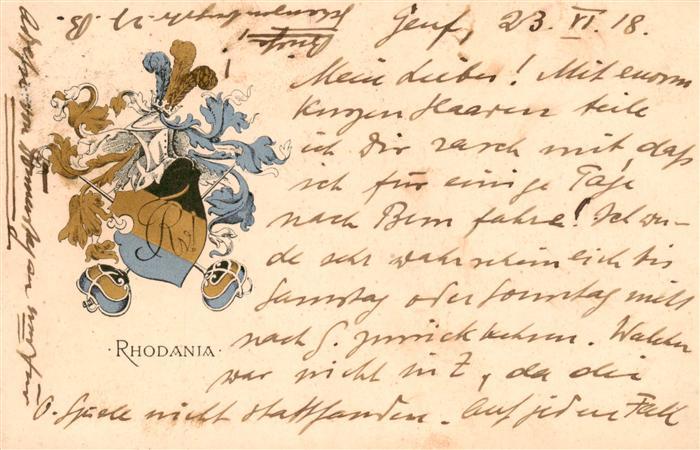 Genf, 23. VI. 18.
Mein Lieber! Mit enorm
kurzen Haaren teile
ich Dir rasch mit, daß
ich für einige Tage
nach Bern fahre! Ich wer-
de sehr wahrscheinlich bis
Samstag oder Sonntag mitt
nach G. zurückkehren. Walter
war nicht in Z, da die
O. Spiele nicht stattfanden. Auf jeden Fall
RHODANIA